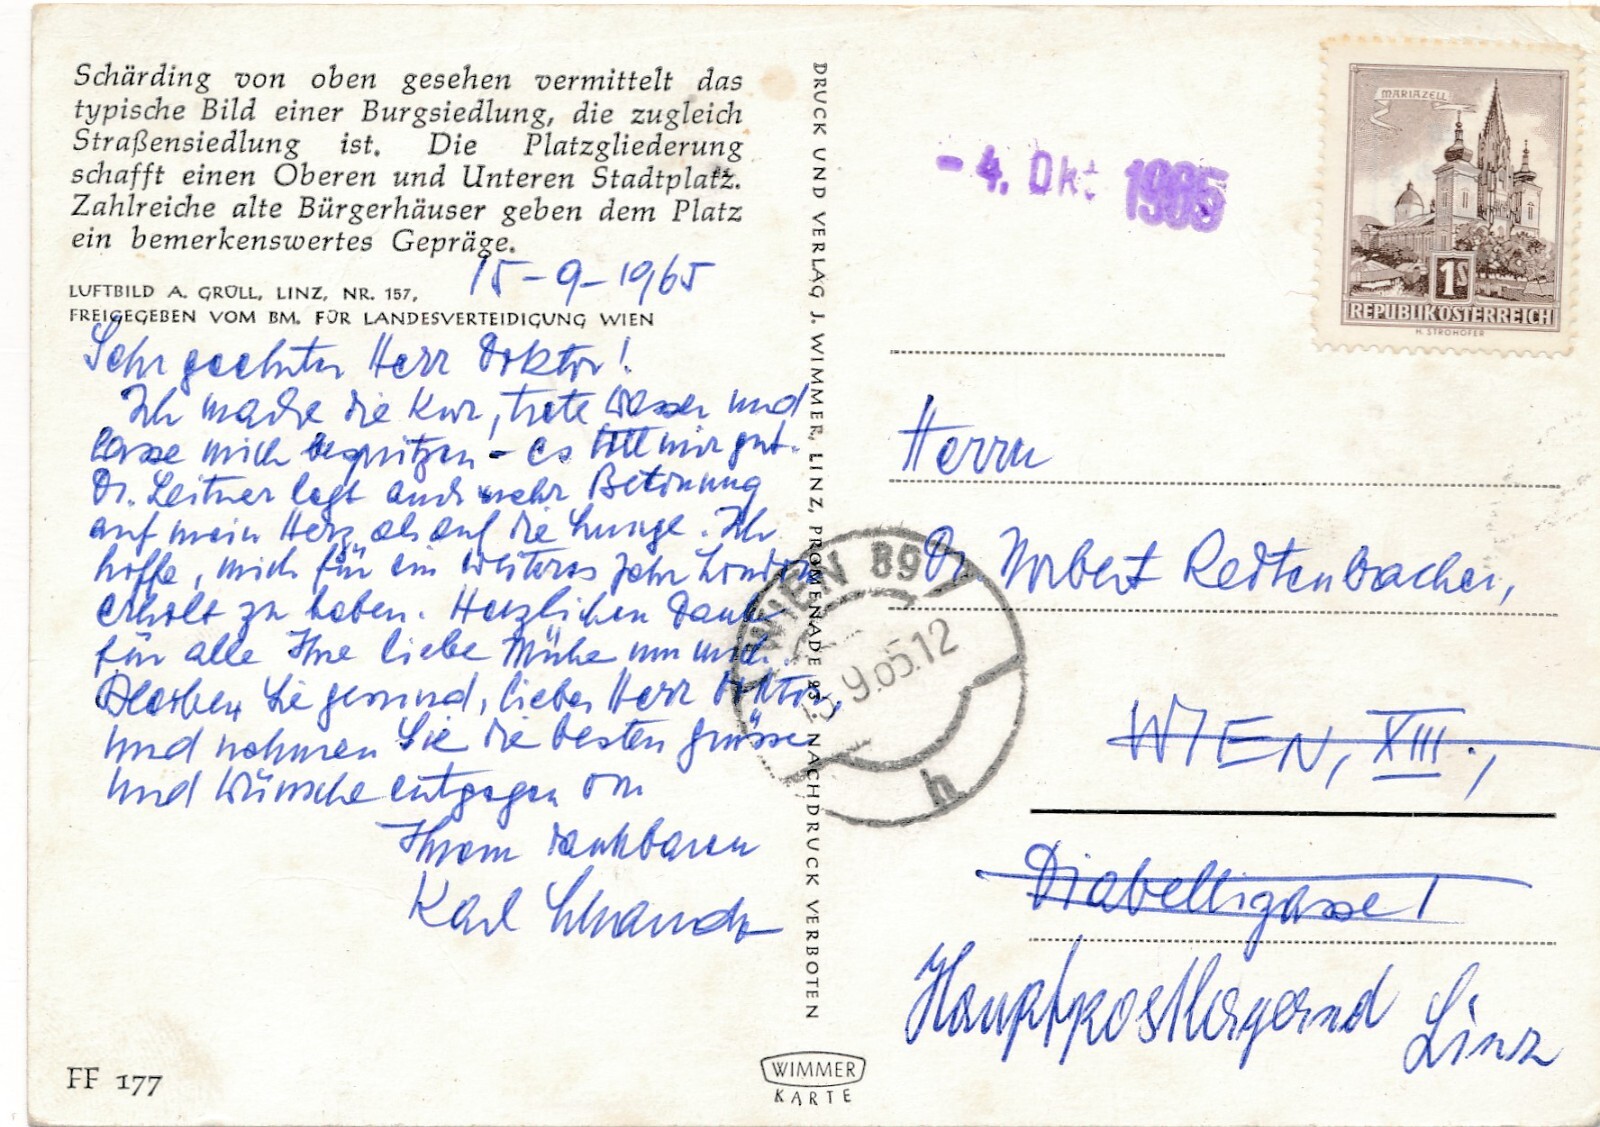 Schärding von oben gesehen vermittelt das
typische Bild einer Burgsiedlung, die zugleich
Straßensiedlung ist. Die Platzgliederung
schafft einen Oberen und Unteren Stadtplatz.
Zahlreiche alte Bürgerhäuser geben dem Platz
ein bemerkenswertes Gepräge.
LUFTBILD A. GRÜLL, LINZ, NR. 157,
FREIGEGEBEN VOM BM. FÜR LANDESVERTEIDIGUNG WIEN
15-9-1965
Sehr geehrter Herr Doktor!
Ich mache die Kur, trete Wasser und
lasse mich bespritzen - es tut mir gut.
Dr. Leitner legt auch mehr Betonung
auf mein Herz als auf die Lunge. Ich
hoffe, mich für ein weiteres Jahr
erholt zu haben. Herzlichen Dank
für alle Ihre liebe Mühe um mich.
Bleiben Sie gesund, lieber Herr Doktor,
und nehmen Sie die besten Grüsse
und Wünsche entgegen von
Ihrem dankbaren
Karl
FF 177
DRUCK UND VERLAG J. WIMMER, LINZ, PROMENADE 23. NACHDRUCK VERBOTEN
WIMMER
KARTE
- 4. Okt 1965
MARIAZELL
1S
REPUBLIK ÖSTERREICH
H. STROHOFER
WIEN 89
9.65.12
h
Herrn
Dr. Norbert Redtenbacher,
WIEN, XIII.,
Diabelligasse 1
Hauptpostlagernd
Linz